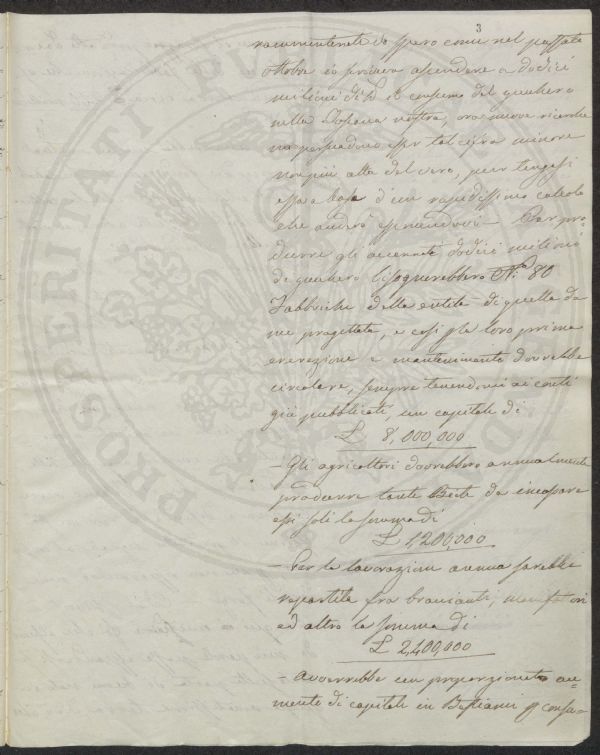 3
rammenterete io spero come nel passato
ottobre io provava ascendere a dodici
milioni di L il consumo del zucchero
nella Toscana nostra, ora nuove ricerche
esser tal cifra minore
non più alta del vero, pur tengasi
essa a base d'un rapidissimo calcolo
che andrò esponendovi - Per pro=
durre gli accennati dodici milioni
di zucchero bisognerebbero N.° 80
Fabbriche della entità di quella da
me progettata, e così per la loro prima
erezione e mantenimento dovrebbe
circolare, sempre tenendomi ai conti
già pubblicati, un capitale di
£ 8,000,000
- Gli agricoltori dovrebbero annualmente
produrre tante Biete da incassare
essi soli la somma di
£ 1,200,000
- Per la lavorazione annua sarebbe
repartita fra braccianti, manifattori
ed altro la somma di
£ 2,400,000
- Avverrebbe un proporzionato au=
mento di capitali in Bestiami per consu=
PROSPERITATI PUBLICAE